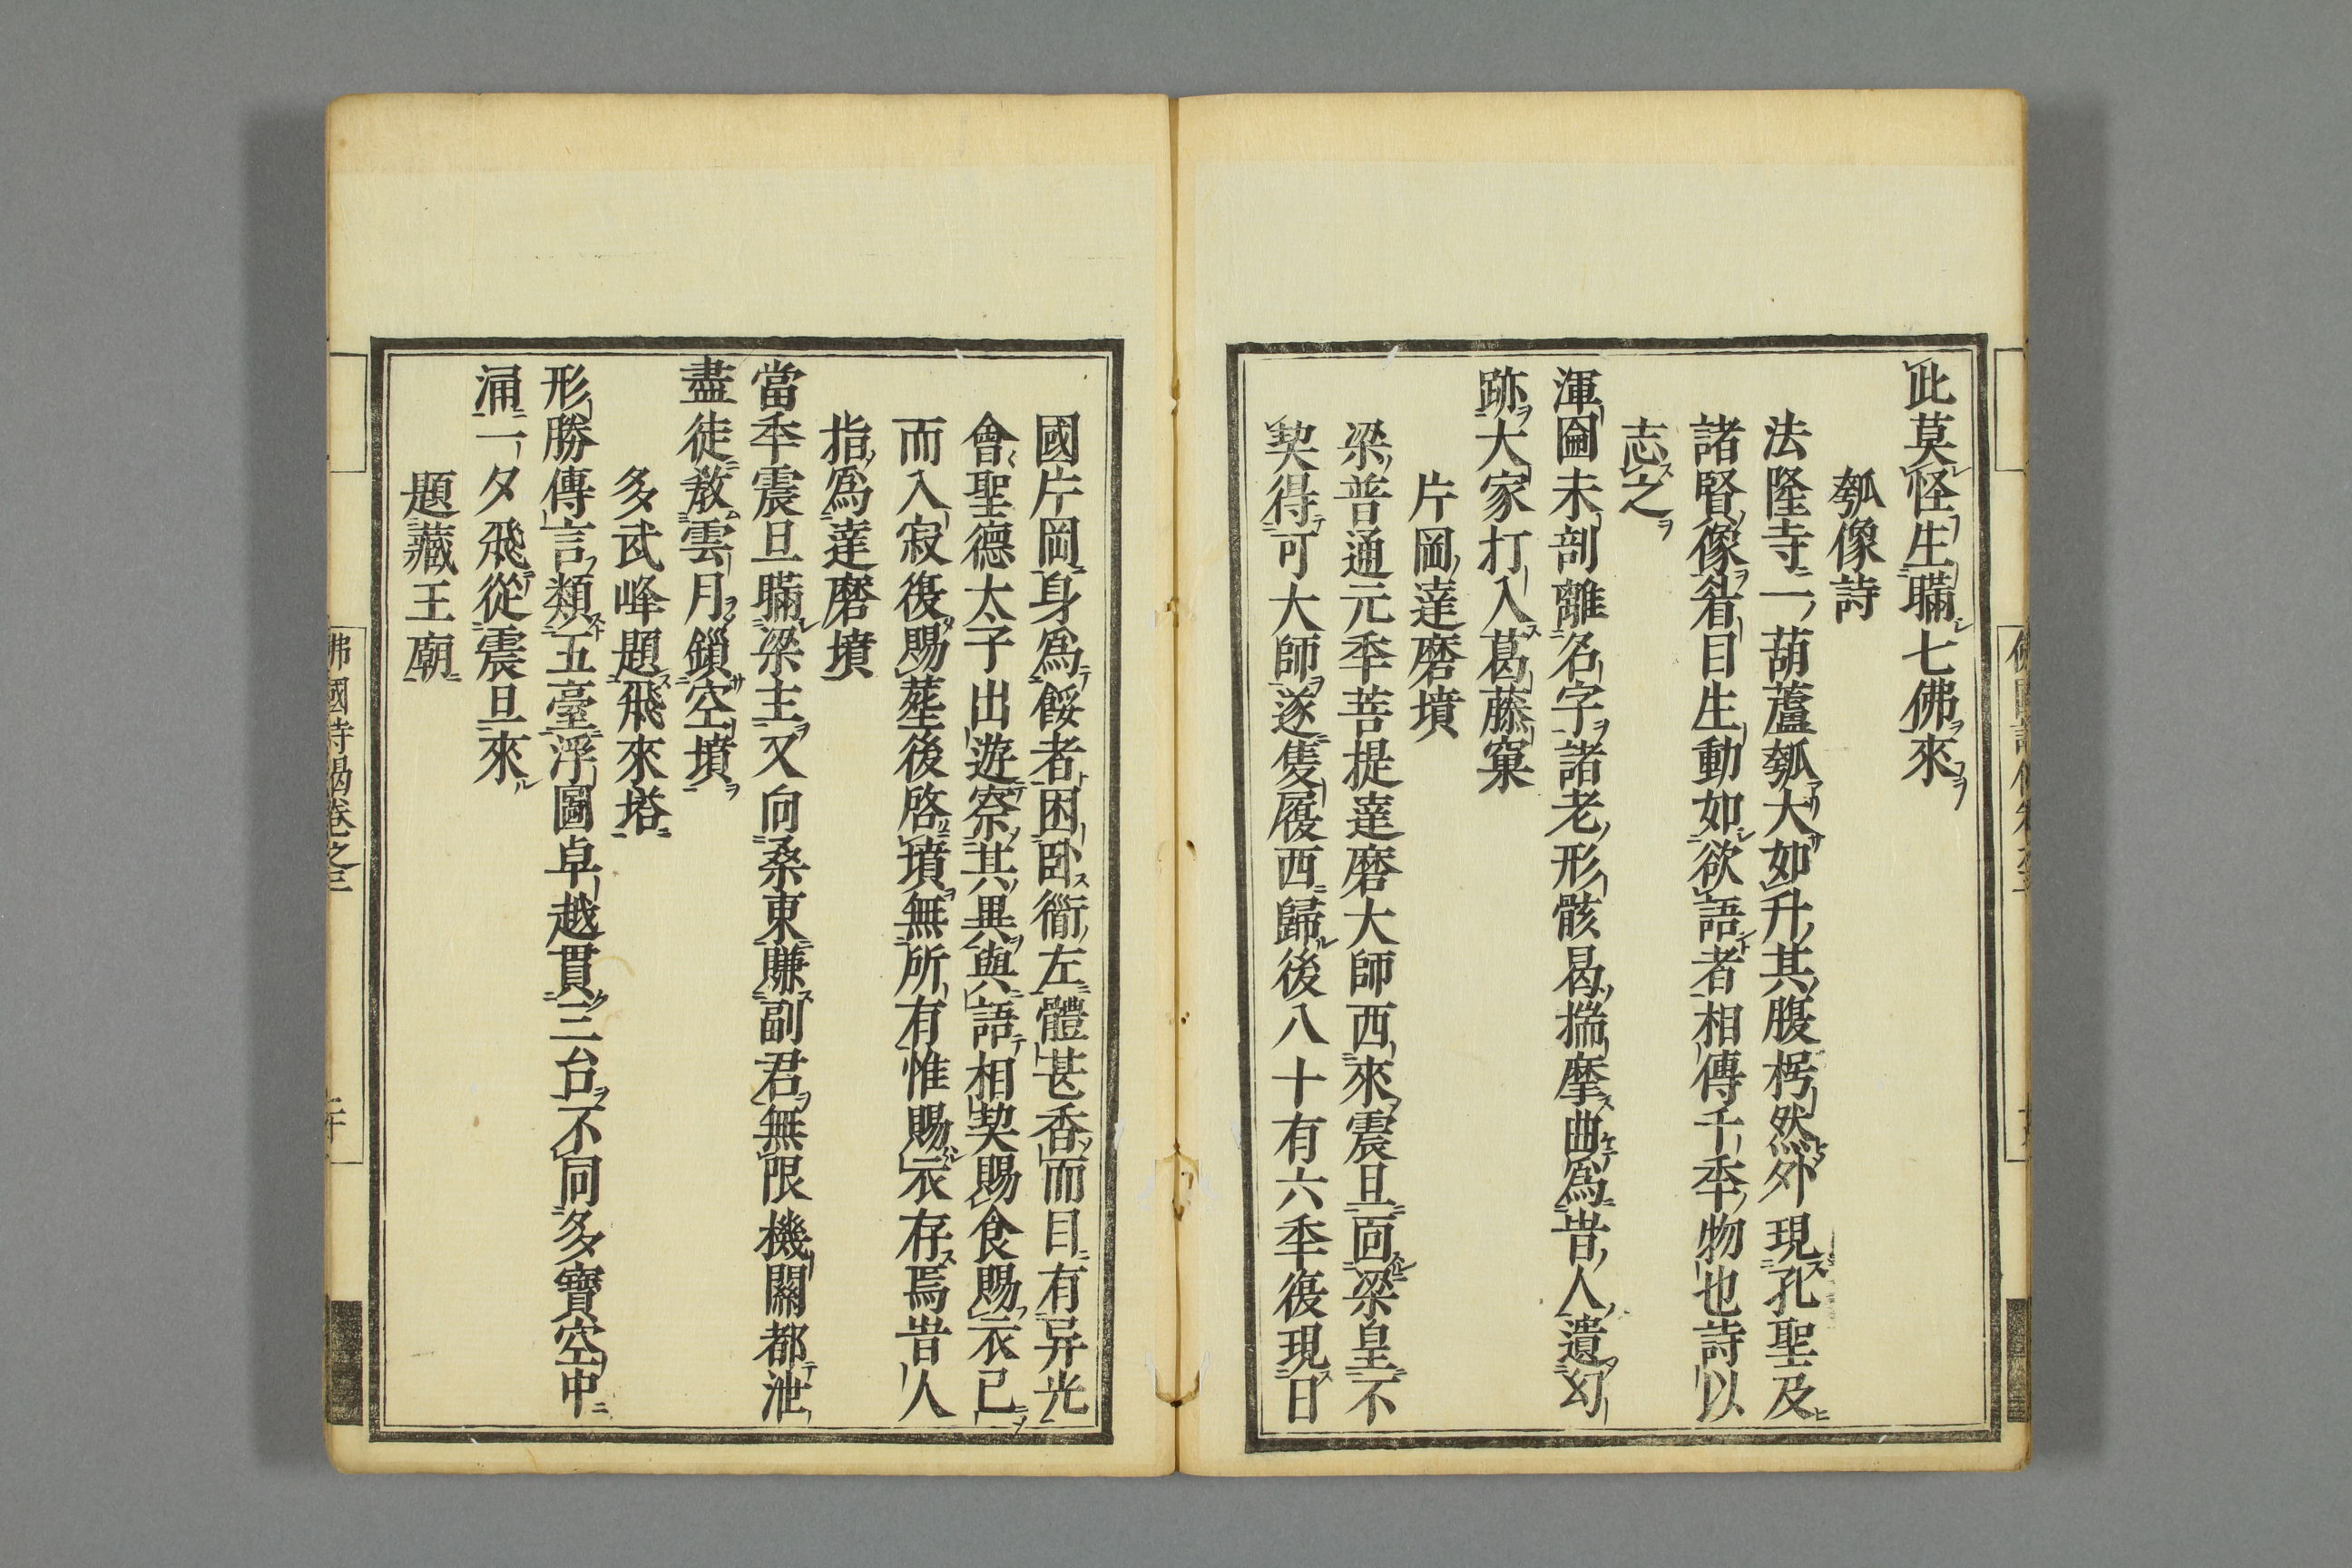 此莫怪生瞞七佛來
瓠像詩
法隆寺一葫蘆瓠大如升其腹枵然外現孔聖及
諸賢像眉目生動如欲語者相傳千秊物也詩以
志之
渾圇未剖離名字諸老形骸曷揣摩曲爲昔人遺幻
跡大家打入葛藤窠
片岡達磨墳
梁普通元秊菩提達磨大師西來震旦面梁皇不
契得可大師遂隻履西歸後八十有六秊復現日
國片岡身爲餒者困臥衢左體甚香而目有异光
會聖德太子出遊察其異與語相契賜食賜衣已
而入寂復賜塟後啓墳無所有惟賜衣存焉昔人
指爲達磨墳
當秊震旦瞞梁主又向桑東賺副君無限機關都泄
盡徒教雲月鎖空墳
多武峰題飛來塔
形勝傳言類五臺浮圖卓越貫三台不同多寶空中
涌一夕飛從震旦來
題藏王廟
佛國詩偈卷之三